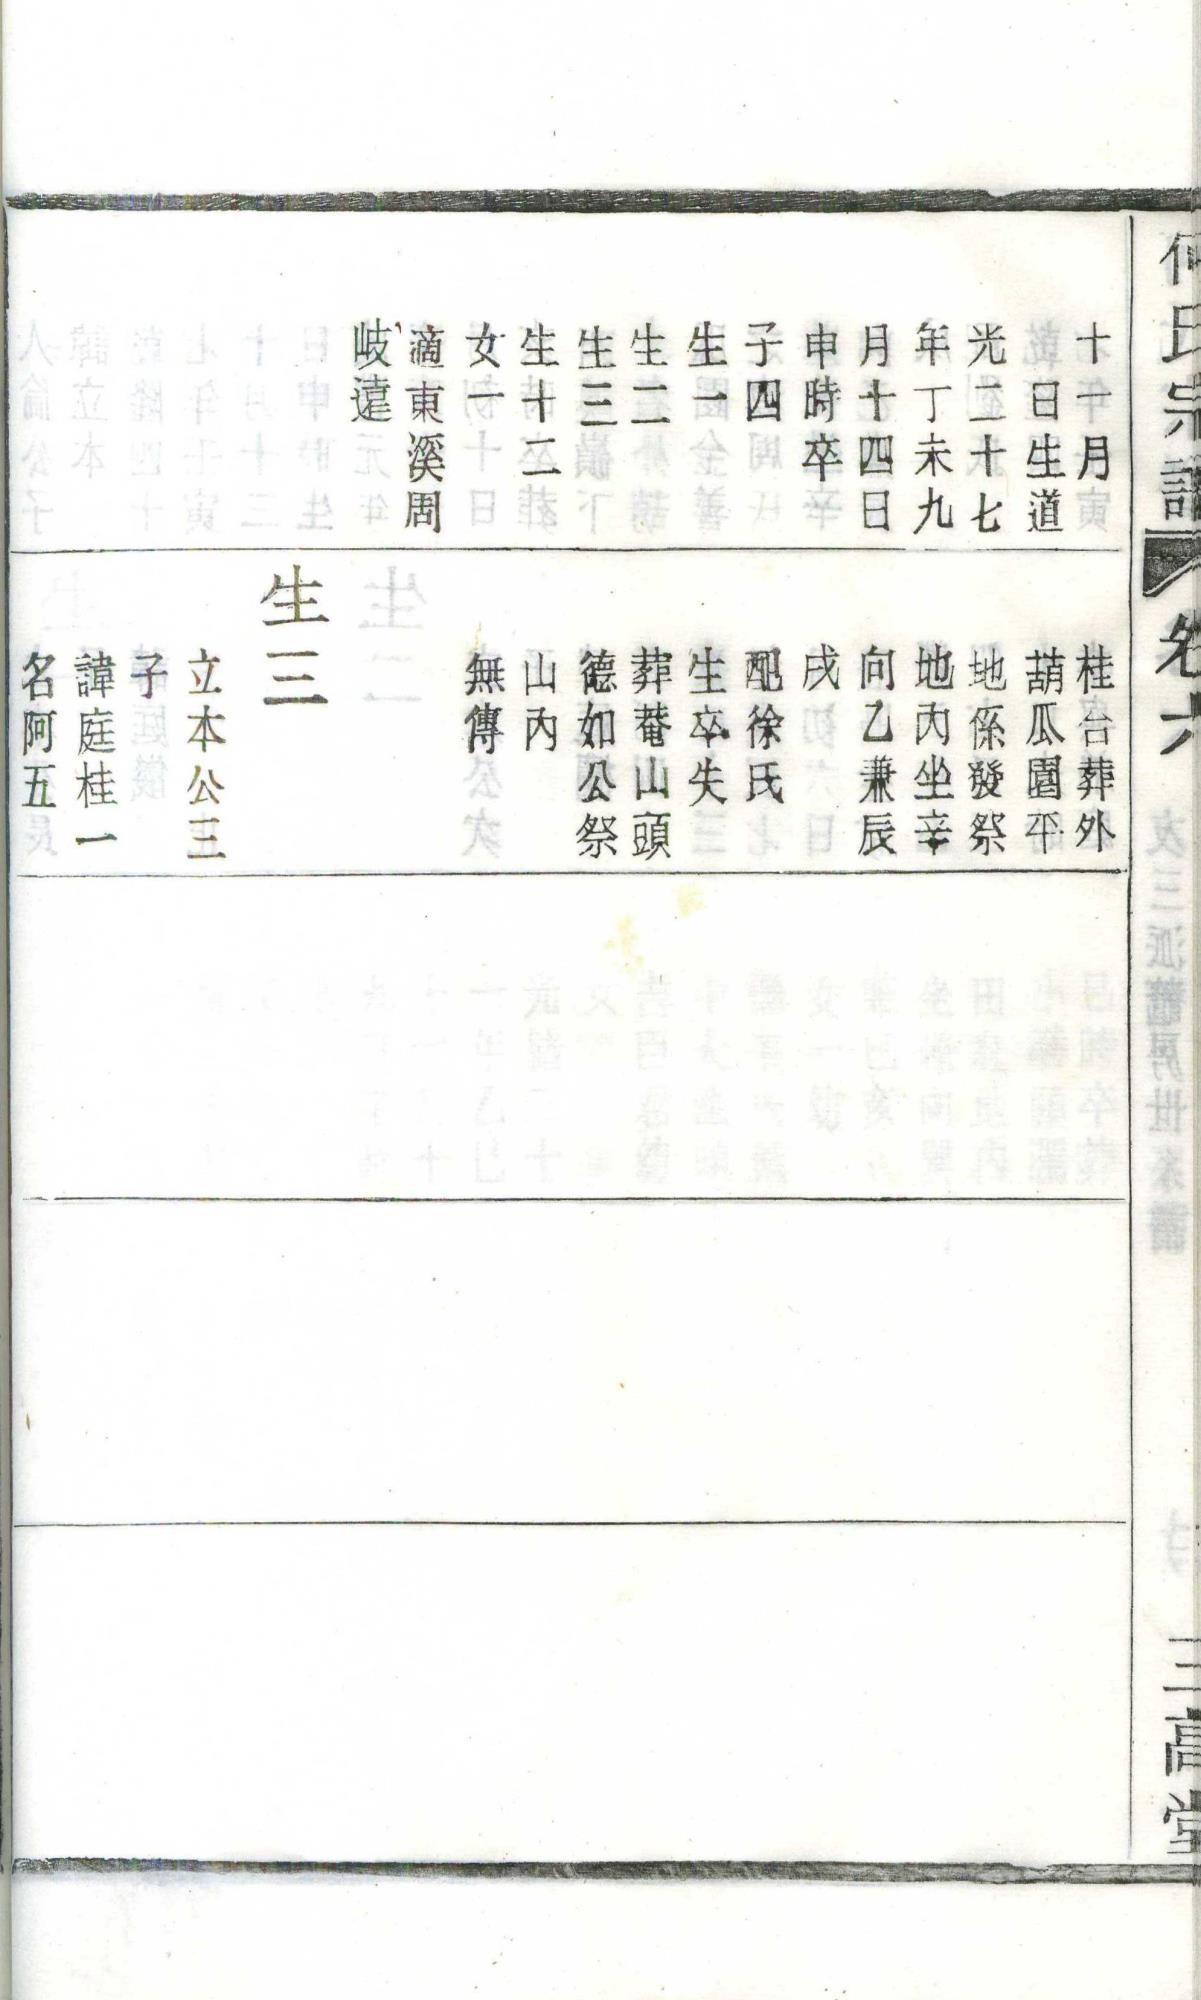 何氏宗譜
卷六
三高堂
十一月
日生道
光二十七
年丁未九
月十四日
申時卒
子四
生一
生二
生三
生十二
女一
適東溪周
岐遠
桂台葬外
葫瓜園平
地係發祭
地內坐辛
向乙兼辰
戌
配徐氏
生卒失
葬菴山頭
德如公祭
山內
無傳
生三
立本公三
子
諱庭桂一
名阿五